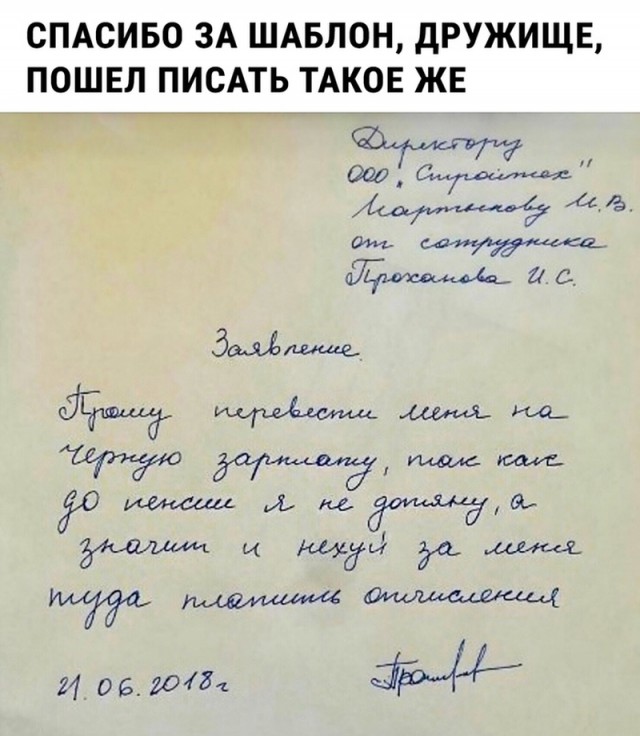 СПАСИБО ЗА ШАБЛОН, ДРУЖИЩЕ,
ПОШЕЛ ПИСАТЬ ТАКОЕ ЖЕ
Директору
ООО „Стройтех"
Мартынову И.В.
от сотрудника
Проханова И.С.
Заявление.
Прошу перевести меня на
Черную зарплату, так как
до пенсии я не дотяну, а
значит и нехуй за меня
туда платить отчисления
21.06.2018г